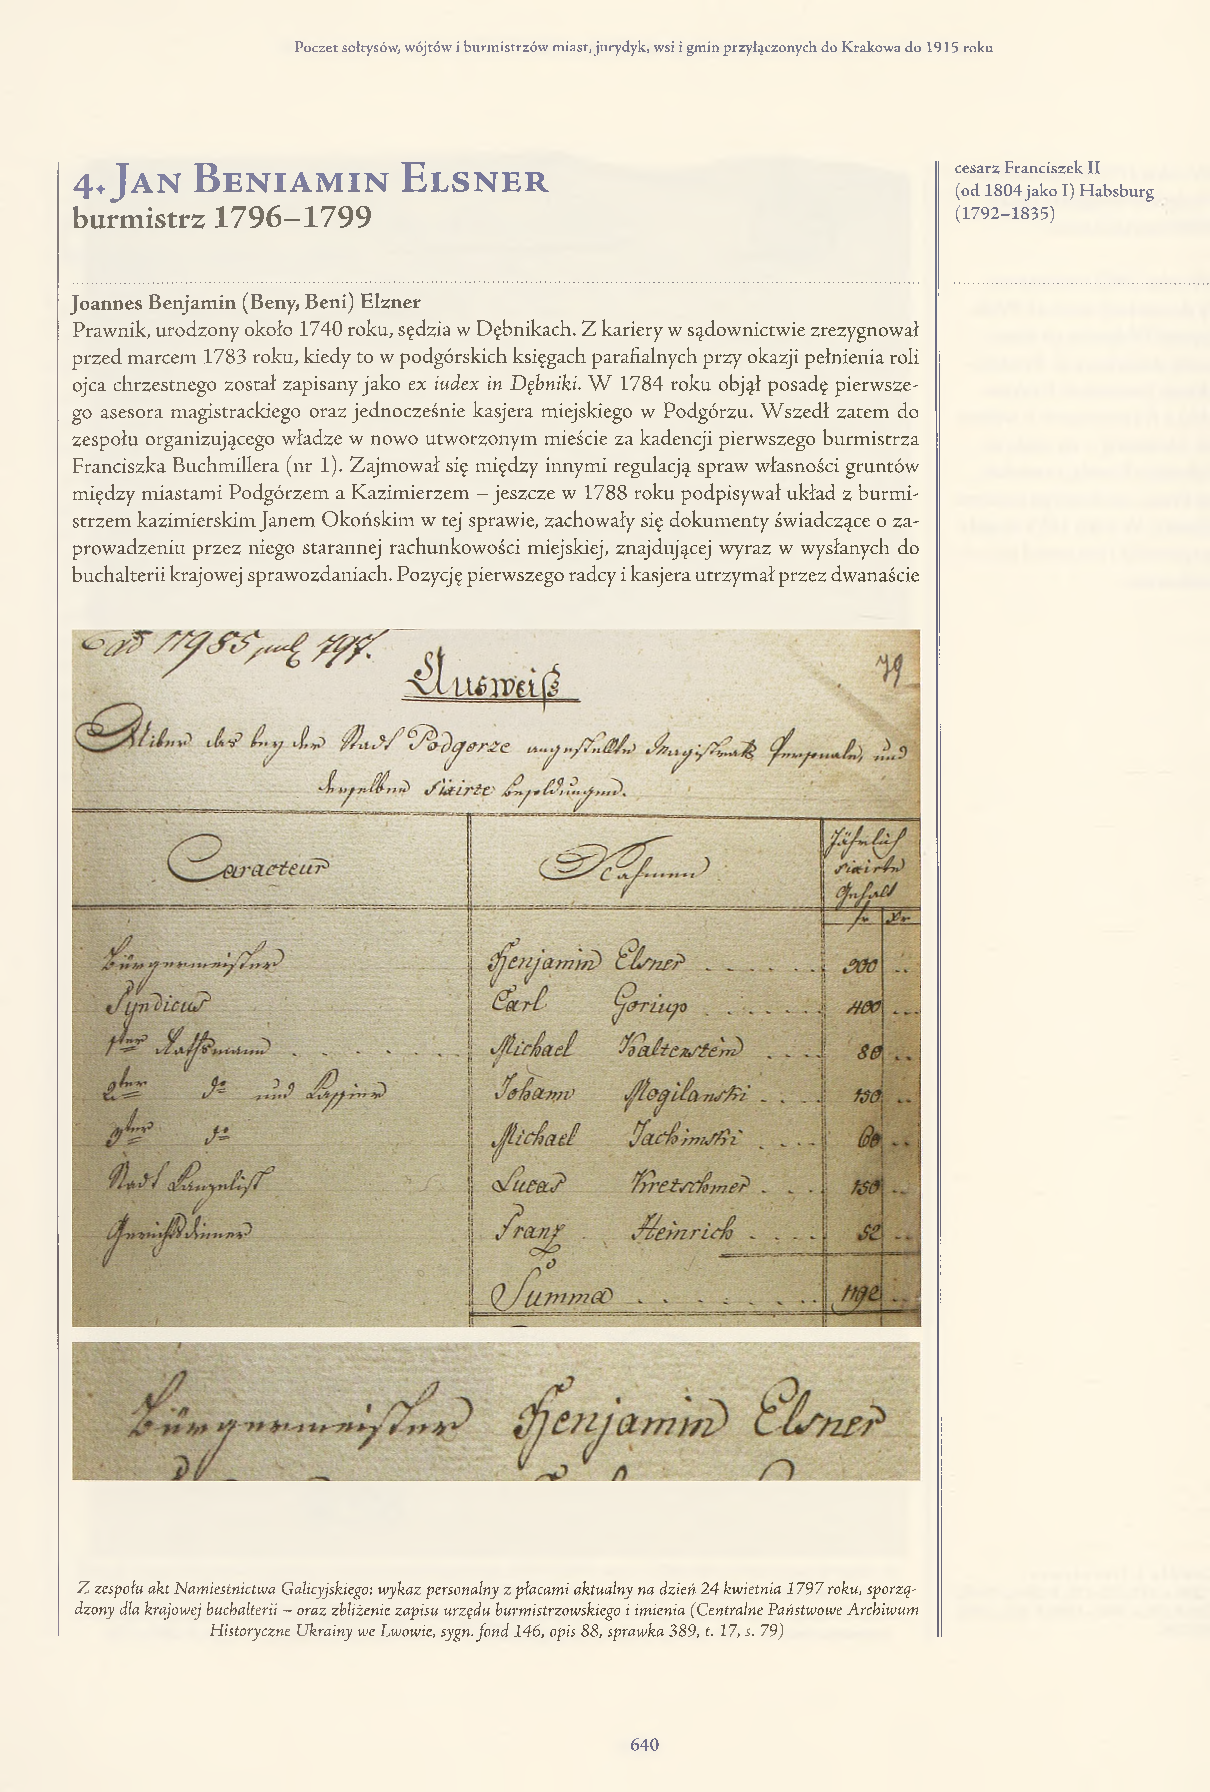 Poczet sołtysów, wójtów i burmistrzów miast, jurydyk, wsi i gmin przyłączonych do Krakowa do 1915 roku
4. Jan Beniamin Elsner
burmistrz 1796–1799
cesarz Franciszek II
(od 1804 jako I) Habsburg
(1792–1835)
Joannes Benjamin (Beny, Beni) Elzner
Prawnik, urodzony około 1740 roku, sędzia w Dębnikach. Z kariery w sądownictwie zrezygnował
przed marcem 1783 roku, kiedy to w podgórskich księgach parafialnych przy okazji pełnienia roli
ojca chrzestnego został zapisany jako ex iudex in Dębniki. W 1784 roku objął posadę pierwsze-
go asesora magistrackiego oraz jednocześnie kasjera miejskiego w Podgórzu. Wszedł zatem do
zespołu organizującego władze w nowo utworzonym mieście za kadencji pierwszego burmistrza
Franciszka Buchmillera (nr 1). Zajmował się między innymi regulacją spraw własności gruntów
między miastami Podgórzem a Kazimierzem – jeszcze w 1788 roku podpisywał układ z burmi-
strzem kazimierskim Janem Okońskim w tej sprawie, zachowały się dokumenty świadczące o za-
prowadzeniu przez niego starannej rachunkowości miejskiej, znajdującej wyraz w wysłanych do
buchalterii krajowej sprawozdaniach. Pozycję pierwszego radcy i kasjera utrzymał przez dwanaście
ad 11985 797.
79
Ausweiß
Uiber das bey der Stadt Podgorze angestellte Magistrats Personale, und
derselben fixirte Besoldungen.
Caracteur Nahmen Jährlich
fixirte
Gehalt
fr Xr
Bürgermeister Benjamin Elsner 300
Syndicus Carl Goriup 400
1ter Rathsmann Michael Kaltenstein 80
2ter do und Cassier Johann Mogilanski 150
3ter do Michael Jachimski 60
Stadt Canzelist Lucas Kretschmer 150
Gerichtsdiener Franz Heinrich 52
Summa 1192
Bürgermeister Benjamin Elsner
Z zespołu akt Namiestnictwa Galicyjskiego: wykaz personalny z płacami aktualny na dzień 24 kwietnia 1797 roku, sporzą-
dzony dla krajowej buchalterii – oraz zbliżenie zapisu urzędu burmistrzowskiego i imienia (Centralne Państwowe Archiwum
Historyczne Ukrainy we Lwowie, sygn. fond 146, opis 88, sprawka 389, t. 17, s. 79)
640